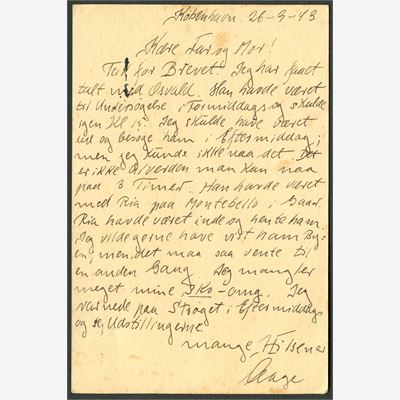 København 26-9-43
Kære Far og Mor!
Tak for Brevet. Jeg har faaet
talt med Osvald. Han havde været
til Undersøgelse i Formiddags og skulde
igen Kl 15. Jeg skulde have været
ud og besøge ham i Eftermiddag;
men jeg kunde ikke naa det. Det
er ikke alverden man kan naa
paa 3 Timer. Han havde været
med Ria paa Montebello i Gaar
Ria havde været inde og hente ham.
Jeg vilde gerne have vist ham By-
en, men det maa saa vente til
en anden Gang. Jeg mangler
meget mine Sko - omg. Jeg
var nede paa Strøget i Eftermiddags
og se Udstillingerne.
mange Hilsener
Aage